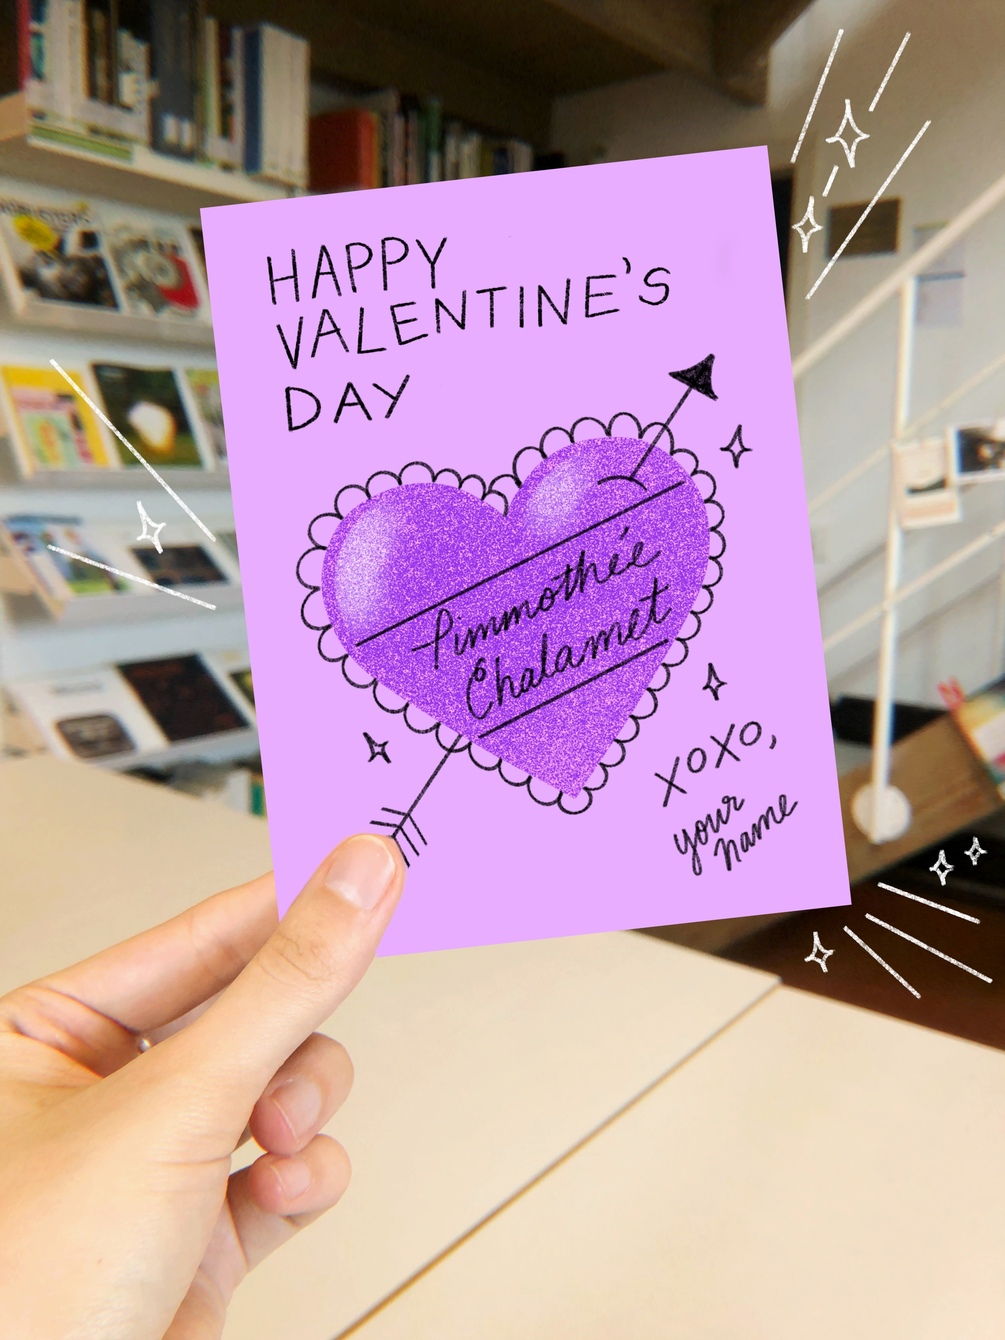 HAPPY
VALENTINE'S
DAY
Timmothée
Chalamet
XOXO,
your
name